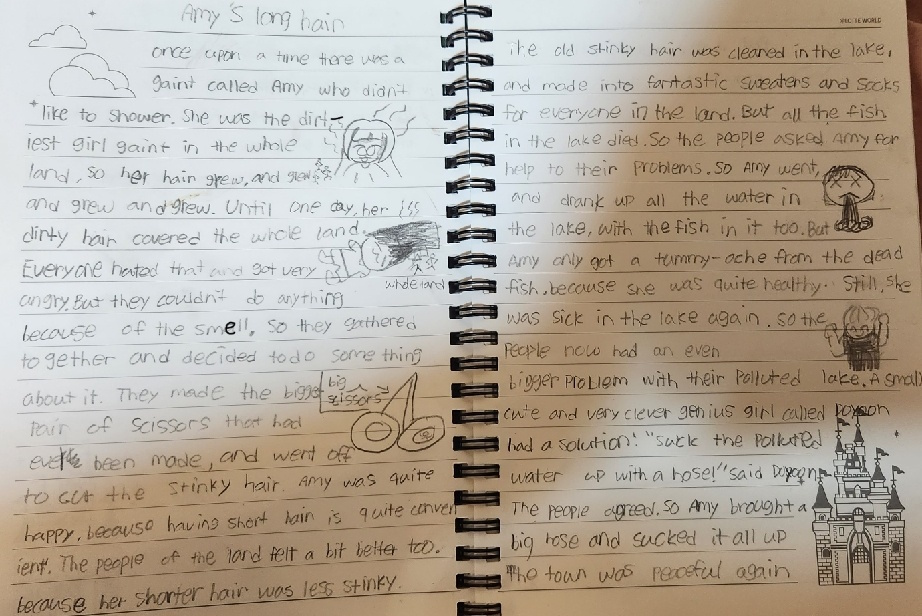 Amy's long hair
once upon a time there was a
gaint called Amy who didn't
like to shower. She was the dirt-
iest girl gaint in the whole
land, so her hair grew, and grew
and grew and grew. Until one day, her
dirty hair covered the whole land.
whole land
Everyone hated that and got very
angry. But they couldn't do anything
because of the smell. So they gathered
together and decided to do something
about it. They made the biggest
big
scissors
Pair of scissors that had
ever been made, and went off
to cut the stinky hair. Amy was quite
happy. because having short hair is quite conven
ient. The people of the land felt a bit better too.
because her shorter hair was less stinky.
THE WORLD
The old stinky hair was cleaned in the lake,
and made into fantastic sweaters and socks
for everyone in the land. But all the fish
in the lake died. So the people asked Amy for
help to their Problems. So Amy went,
and drank up all the water in
the lake, with the fish in it too. But
Amy only got a tummy-ache from the dead
fish, because she was quite healthy. Still, she
was sick in the lake again. So the
People now had an even
bigger Problem with their Polluted lake. A small
cute and very clever genius girl called Doyoon
had a solution! "suck the Polluted
water up with a hose!" said Doyoon
The people agreed. So Amy brought a
big hose and sucked it all up
The town was Peaceful again